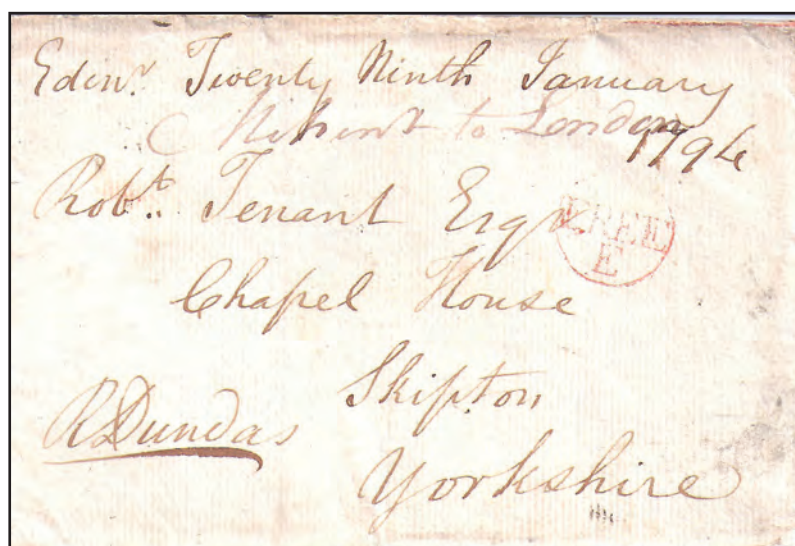 Edinr. Twenty Ninth January
to London
1794
Robt. Tenant Esqr
FREE
E
Chapel House
Skipton
RDundas
Yorkshire